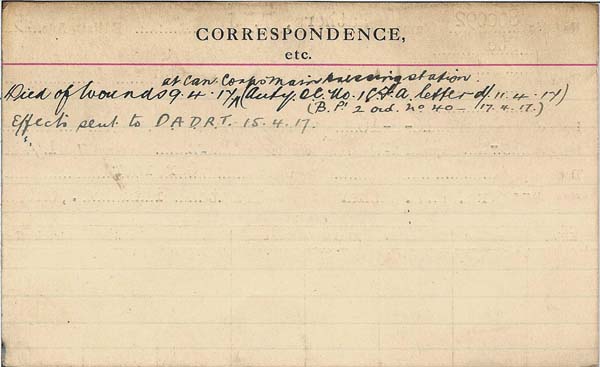 CORRESPONDENCE,
etc.
at Can. Corps Main dressing station.
Died of Wounds 9.4.17 (Auty. O.C. No. 1 C.F.A. letter d/ 11.4.17)
(B. P' 2 ord. No 40 - 17.4.17.)
Effects sent to D.A.D.R.T. 15.4.17.